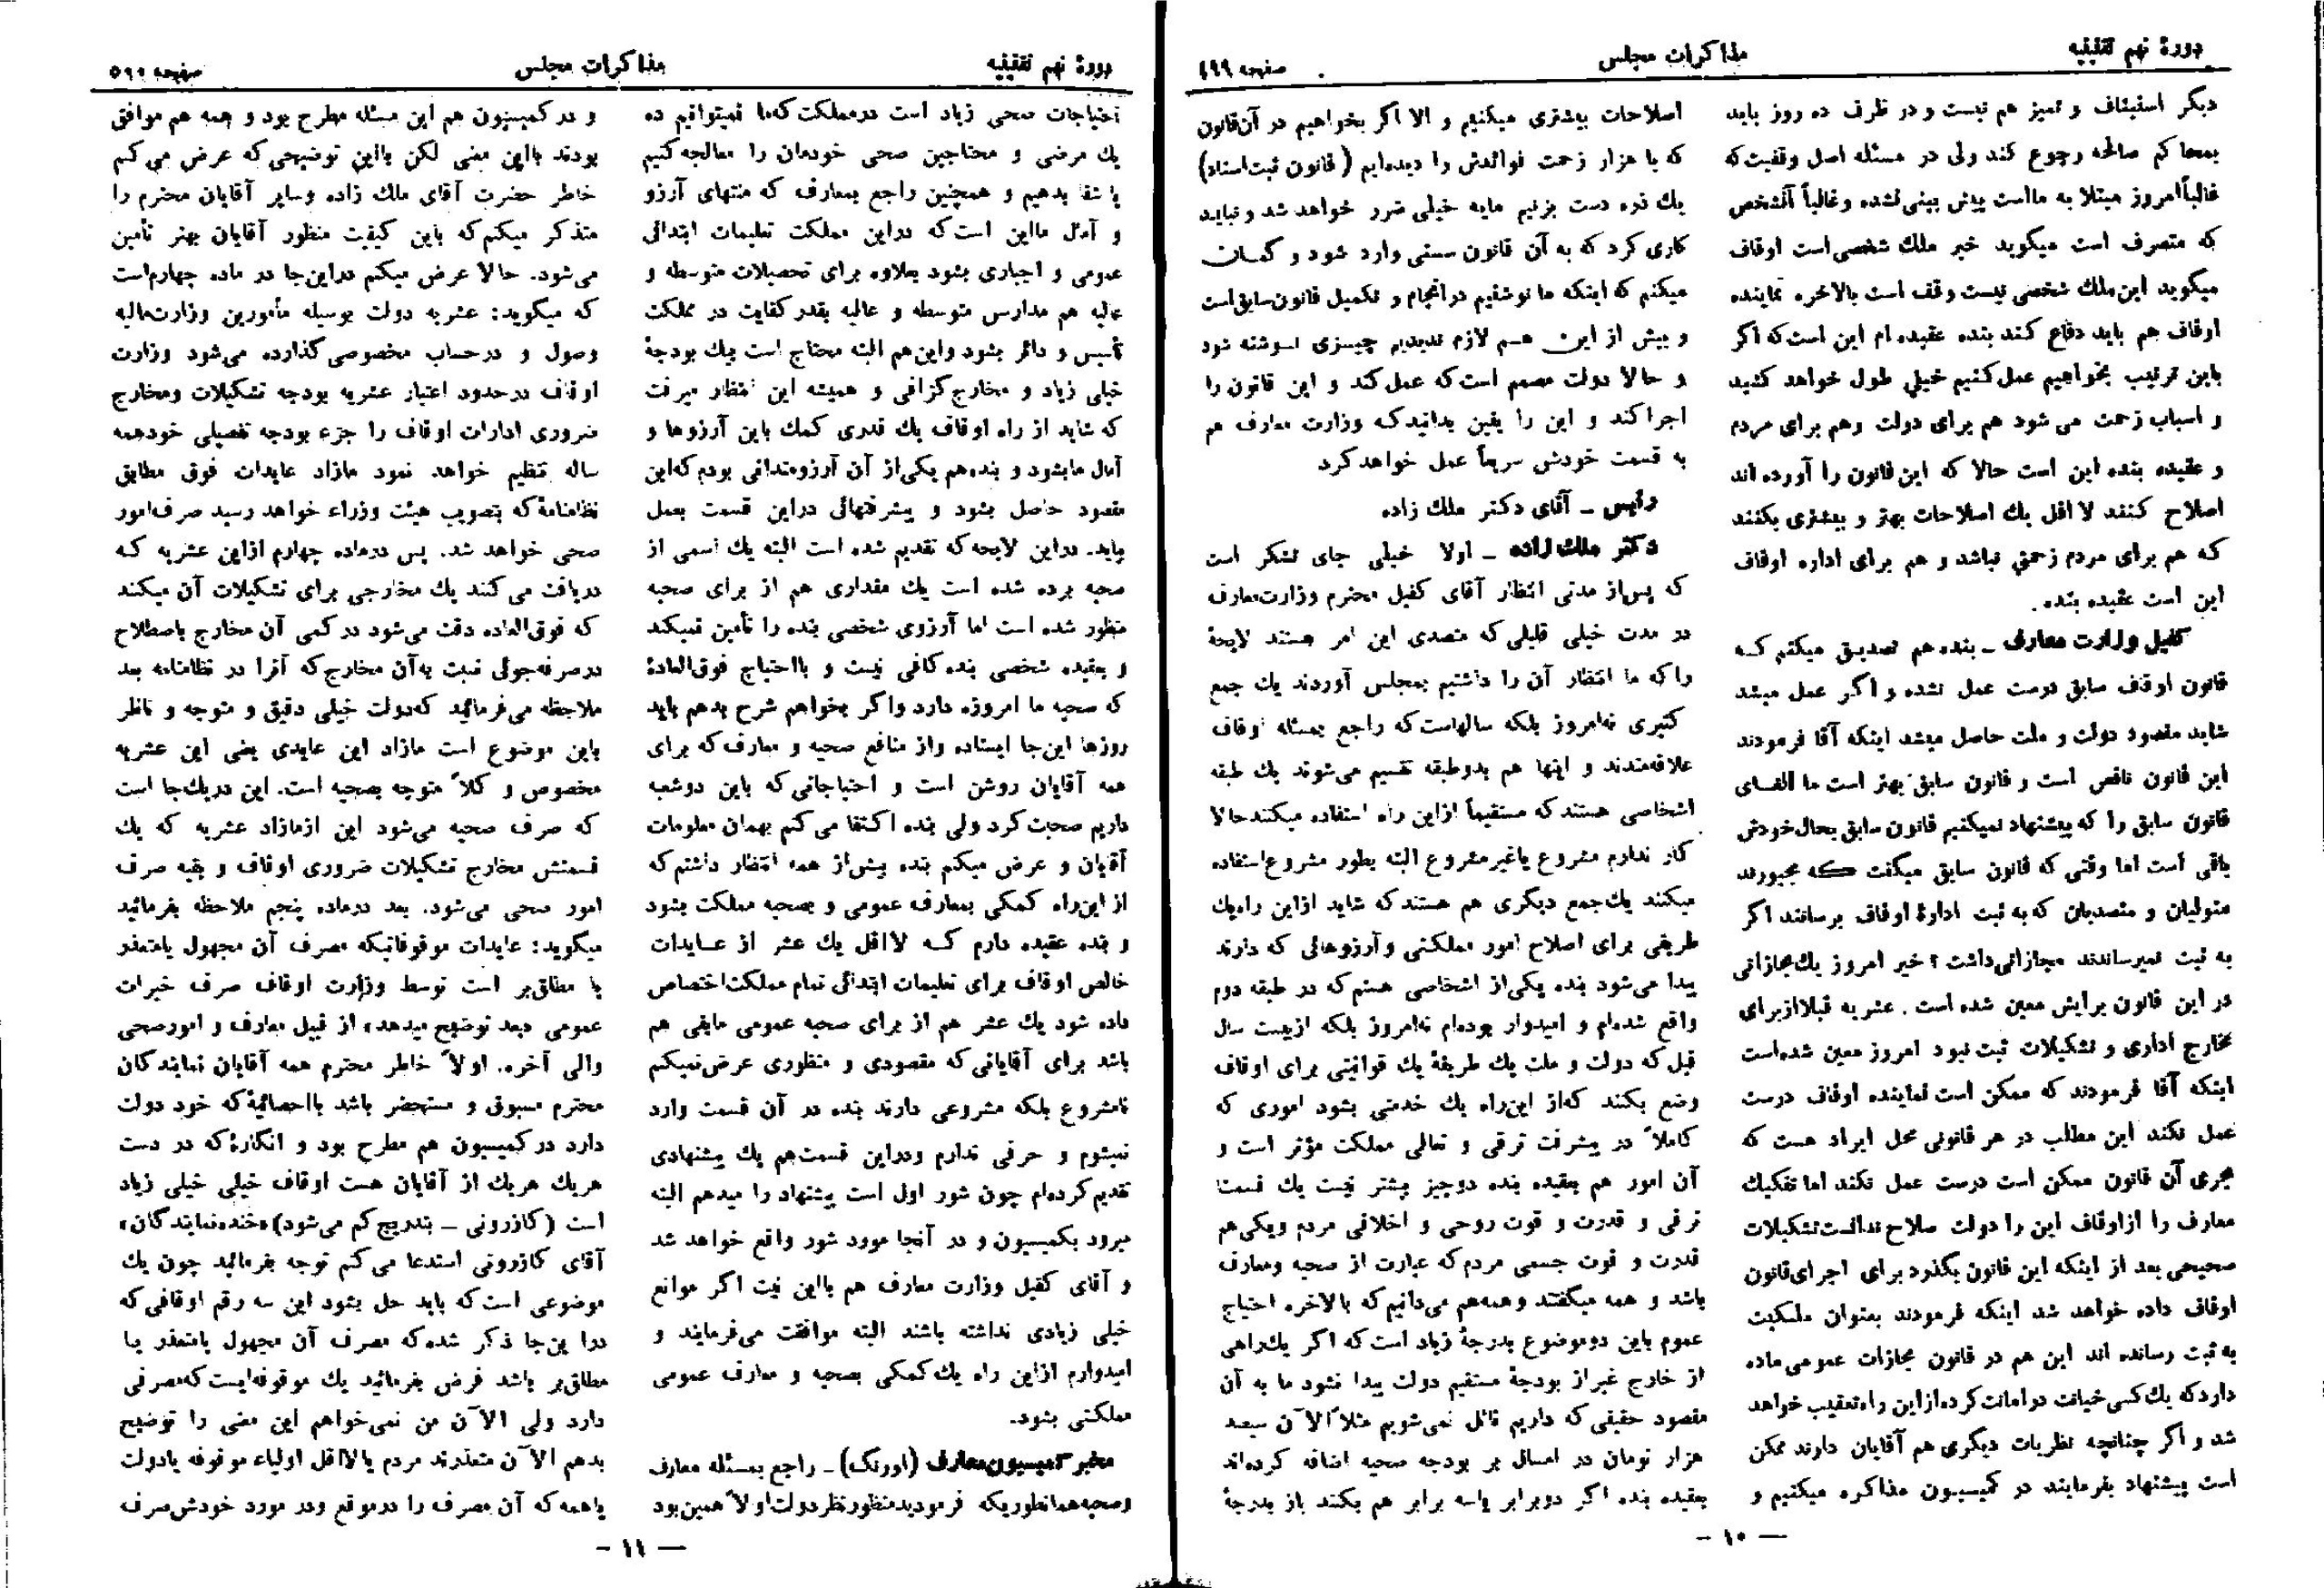 دورهٔ نهم تقنینیه
مذاکرات مجلس
صفحه ۴۹۹
دیگر استیناف و تمیز هم نیست و در ظرف ده روز باید
بمحاکم صالحه رجوع کند ولی در مسئله اصل وقفیت که
غالباً امروز مبتلا به مااست پیش بینی نشده و غالباً آنشخص
که متصرف است میگوید خیر ملك شخصی است اوقاف
میگوید این ملك شخصی نیست وقف است بالاخره نماینده
اوقاف هم باید دفاع کند بنده عقیده ام این است که اگر
باین ترتیب بخواهیم عمل کنیم خیلی طول خواهد کشید
و اسباب زحمت می شود هم برای دولت وهم برای مردم
و عقیده بنده این است حالا که این قانون را آورده اند
اصلاح کنند لا اقل یك اصلاحات بهتر و بیشتری بکنند
که هم برای مردم زحمتی نباشد و هم برای اداره اوقاف
این است عقیده بنده.
کفیل وزارت معارف ــ بنده هم تصدیق میکنم که
قانون اوقاف سابق درست عمل نشده و اگر عمل میشد
شاید مقصود دولت و ملت حاصل میشد اینکه آقا فرمودند
این قانون ناقص است و قانون سابق بهتر است ما الغای
قانون سابق را که پیشنهاد نمیکنیم قانون سابق بحال خودش
باقی است اما وقتی که قانون سابق میگفت که مجبورند
متولیان و متصدیان که به ثبت ادارهٔ اوقاف برسانند اگر
به ثبت نمیرساندند مجازاتی داشت ؟ خیر امروز یك مجازاتی
در این قانون برایش معین شده است . عشریه قبلا از برای
مخارج اداری و تشکیلات ثبت نبود امروز معین شده است
اینکه آقا فرمودند که ممکن است نماینده اوقاف درست
عمل نکند این مطلب در هر قانونی محل ایراد هست که
مجری آن قانون ممکن است درست عمل نکند اما تفکیك
معارف را از اوقاف این را دولت صلاح ندانست تشکیلات
صحیحی بعد از اینکه این قانون بگذرد برای اجرای قانون
اوقاف داده خواهد شد اینکه فرمودند بعنوان ملکیت
به ثبت رسانده اند این هم در قانون مجازات عمومی ماده
دارد که یك کسی خیانت در امانت کرده از این راه تعقیب خواهد
شد و اگر چنانچه نظریات دیگری هم آقایان دارند ممکن
است پیشنهاد بفرمایند در کمیسیون مذاکره میکنیم و
اصلاحات بیشتری میکنیم و الا اگر بخواهیم در آن قانون
که با هزار زحمت فوائدش را دیده ایم ( قانون ثبت اسناد)
یك ذره دست بزنیم مایه خیلی ضرر خواهد شد و نباید
کاری کرد که به آن قانون سستی وارد شود و گمان
میکنم که اینکه ما نوشتیم در انجام و تکمیل قانون سابق است
و بیش از این هم لازم ندیدیم چیزی نوشته شود
و حالا دولت مصمم است که عمل کند و این قانون را
اجرا کند و این را یقین بدانید که وزارت معارف هم
به قسمت خودش سریعاً عمل خواهد کرد
رئیس ــ آقای دکتر ملك زاده
دکتر ملك زاده ــ اولا خیلی جای تشکر است
که پس از مدتی انتظار آقای کفیل محترم وزارت معارف
در مدت خیلی قلیلی که متصدی این امر هستند لایحهٔ
را که ما انتظار آن را داشتیم بمجلس آوردند یك جمع
کثیری نه امروز بلکه سالهاست که راجع بمسئله اوقاف
علاقه مندند و اینها هم بدو طبقه تقسیم می شوند یك طبقه
اشخاصی هستند که مستقیماً از این راه استفاده میکنند حالا
کار ندارم مشروع یا غیر مشروع البته بطور مشروع استفاده
میکنند یك جمع دیگری هم هستند که شاید از این راه یك
طریقی برای اصلاح امور مملکتی و آرزوهائی که دارند
پیدا می شود بنده یکی از اشخاصی هستم که در طبقه دوم
واقع شده ام و امیدوار بوده ام نه امروز بلکه از بیست سال
قبل که دولت و ملت یك طریقهٔ یك قوانینی برای اوقاف
وضع بکند که از این راه یك خدمتی بشود اموری که
کاملاً در پیشرفت ترقی و تعالی مملکت مؤثر است و
آن امور هم بعقیده بنده دو چیز بیشتر نیست یك قسمت
ترقی و قدرت و قوت روحی و اخلاقی مردم و یکی هم
قدرت و قوت جسمی مردم که عبارت از صحیه و معارف
باشد و همه میگفتند و همه هم می دانیم که بالاخره احتیاج
عموم باین دو موضوع بدرجهٔ زیاد است که اگر یك راهی
از خارج غیر از بودجهٔ مستقیم دولت پیدا نشود ما به آن
مقصود حقیقی که داریم نائل نمی شویم مثلاً الآن سیصد
هزار تومان در امسال بر بودجه صحیه اضافه کرده اند
بعقیده بنده اگر دو برابر یا سه برابر هم بکنند باز بدرجهٔ
— ۱۰ -
دورهٔ نهم تقنینیه
مذاکرات مجلس
صفحه ۵۰۰
احتیاجات صحی زیاد است در مملکت که ما نمیتوانیم ده
یك مرضی و محتاجین صحی خودمان را معالجه کنیم
یا شفا بدهیم و همچنین راجع بمعارف که منتهای آرزو
و آمال ما این است که در این مملکت تعلیمات ابتدائی
عمومی و اجباری بشود بعلاوه برای تحصیلات متوسطه و
عالیه هم مدارس متوسطه و عالیه بقدر کفایت در مملکت
تأسیس و دائر بشود و این هم البته محتاج است بیك بودجهٔ
خیلی زیاد و مخارج گزافی و همیشه این انتظار میرفت
که شاید از راه اوقاف یك قدری کمك باین آرزوها و
آمال ما بشود و بنده هم یکی از آن آرزومندانی بودم که این
مقصود حاصل بشود و پیشرفتهائی در این قسمت بعمل
بیاید. در این لایحه که تقدیم شده است البته یك اسمی از
صحیه برده شده است یك مقداری هم از برای صحیه
منظور شده است اما آرزوی شخصی بنده را تأمین نمیکند
و بعقیده شخصی بنده کافی نیست و با احتیاج فوق العادهٔ
که صحیه ما امروزه دارد و اگر بخواهم شرح بدهم باید
روزها این جا ایستاده و از منافع صحیه و معارف که برای
همه آقایان روشن است و احتیاجاتی که باین دو شعبه
داریم صحبت کرد ولی بنده اکتفا می کنم بهمان معلومات
آقایان و عرض میکنم بنده بیش از همه انتظار داشتم که
از این راه کمکی بمعارف عمومی و بصحیه مملکت بشود
و بنده عقیده دارم که لااقل یك عشر از عایدات
خالص اوقاف برای تعلیمات ابتدائی تمام مملکت اختصاص
داده شود یك عشر هم از برای صحیه عمومی مابقی هم
باشد برای آقایانی که مقصودی و منظوری عرض نمیکنم
نامشروع بلکه مشروعی دارند بنده در آن قسمت وارد
نمیشوم و حرفی ندارم و در این قسمت هم یك پیشنهادی
تقدیم کرده ام چون شور اول است پیشنهاد را میدهم البته
میرود بکمیسیون و در آنجا مورد شور واقع خواهد شد
و آقای کفیل وزارت معارف هم با این نیت اگر موانع
خیلی زیادی نداشته باشند البته موافقت می فرمایند و
امیدوارم از این راه یك کمکی بصحیه و معارف عمومی
مملکتی بشود.
مخبر کمیسیون معارف (اورنگ) ــ راجع بمسئله معارف
و صحیه همانطوریکه فرمودید منظور نظر دولت اولاً همین بود
و در کمیسیون هم این مسئله مطرح بود و همه هم موافق
بودند با این معنی لکن با این توضیحی که عرض می کنم
خاطر حضرت آقای ملك زاده و سایر آقایان محترم را
متذکر میکنم که باین کیفیت منظور آقایان بهتر تأمین
می شود. حالا عرض میکنم در این جا در ماده چهارم است
که میگوید: عشریه دولت بوسیله مأمورین وزارت مالیه
وصول و در حساب مخصوصی گذارده می شود وزارت
اوقاف در حدود اعتبار عشریه بودجه تشکیلات و مخارج
ضروری ادارات اوقاف را جزء بودجه تفصیلی خود همه
ساله تنظیم خواهد نمود مازاد عایدات فوق مطابق
نظامنامهٔ که بتصویب هیئت وزراء خواهد رسید صرف امور
صحی خواهد شد. پس در ماده چهارم از این عشریه که
دریافت می کنند یك مخارجی برای تشکیلات آن میکنند
که فوق العاده دقت می شود در کمی آن مخارج باصطلاح
در صرفه جوئی نسبت به آن مخارج که آنرا در نظامنامه بعد
ملاحظه می فرمائید که دولت خیلی دقیق و متوجه و ناظر
باین موضوع است مازاد این عایدی یعنی این عشریه
مخصوص و کلاً متوجه بصحیه است. این در یك جا است
که صرف صحیه می شود این از مازاد عشریه که یك
قسمتش مخارج تشکیلات ضروری اوقاف و بقیه صرف
امور صحی می شود. بعد در ماده پنجم ملاحظه بفرمائید
میگوید: عایدات موقوفاتیکه مصرف آن مجهول یا متعذر
یا مطلق بر است توسط وزارت اوقاف صرف خیرات
عمومی «بعد توضیح میدهد» از قبیل معارف و امور صحی
والی آخره. اولاً خاطر محترم همه آقایان نمایندگان
محترم مسبوق و مستحضر باشد با احصائیهٔ که خود دولت
دارد در کمیسیون هم مطرح بود و انگارهٔ که در دست
هر یك هر یك از آقایان هست اوقاف خیلی خیلی زیاد
است (کازرونی ــ بتدریج کم می شود) «خنده نمایندگان»
آقای کازرونی استدعا می کنم توجه بفرمائید چون یك
موضوعی است که باید حل بشود این سه رقم اوقافی که
در این جا ذکر شده که مصرف آن مجهول یا متعذر یا
مطلق بر باشد فرض بفرمائید یك موقوفه ایست که مصرفی
دارد ولی الآن من نمی خواهم این معنی را توضیح
بدهم الآن متعذرند مردم یا لااقل اولیاء موقوفه یا دولت
یا همه که آن مصرف را در موقع و در مورد خودش صرف
— ۱۱ -